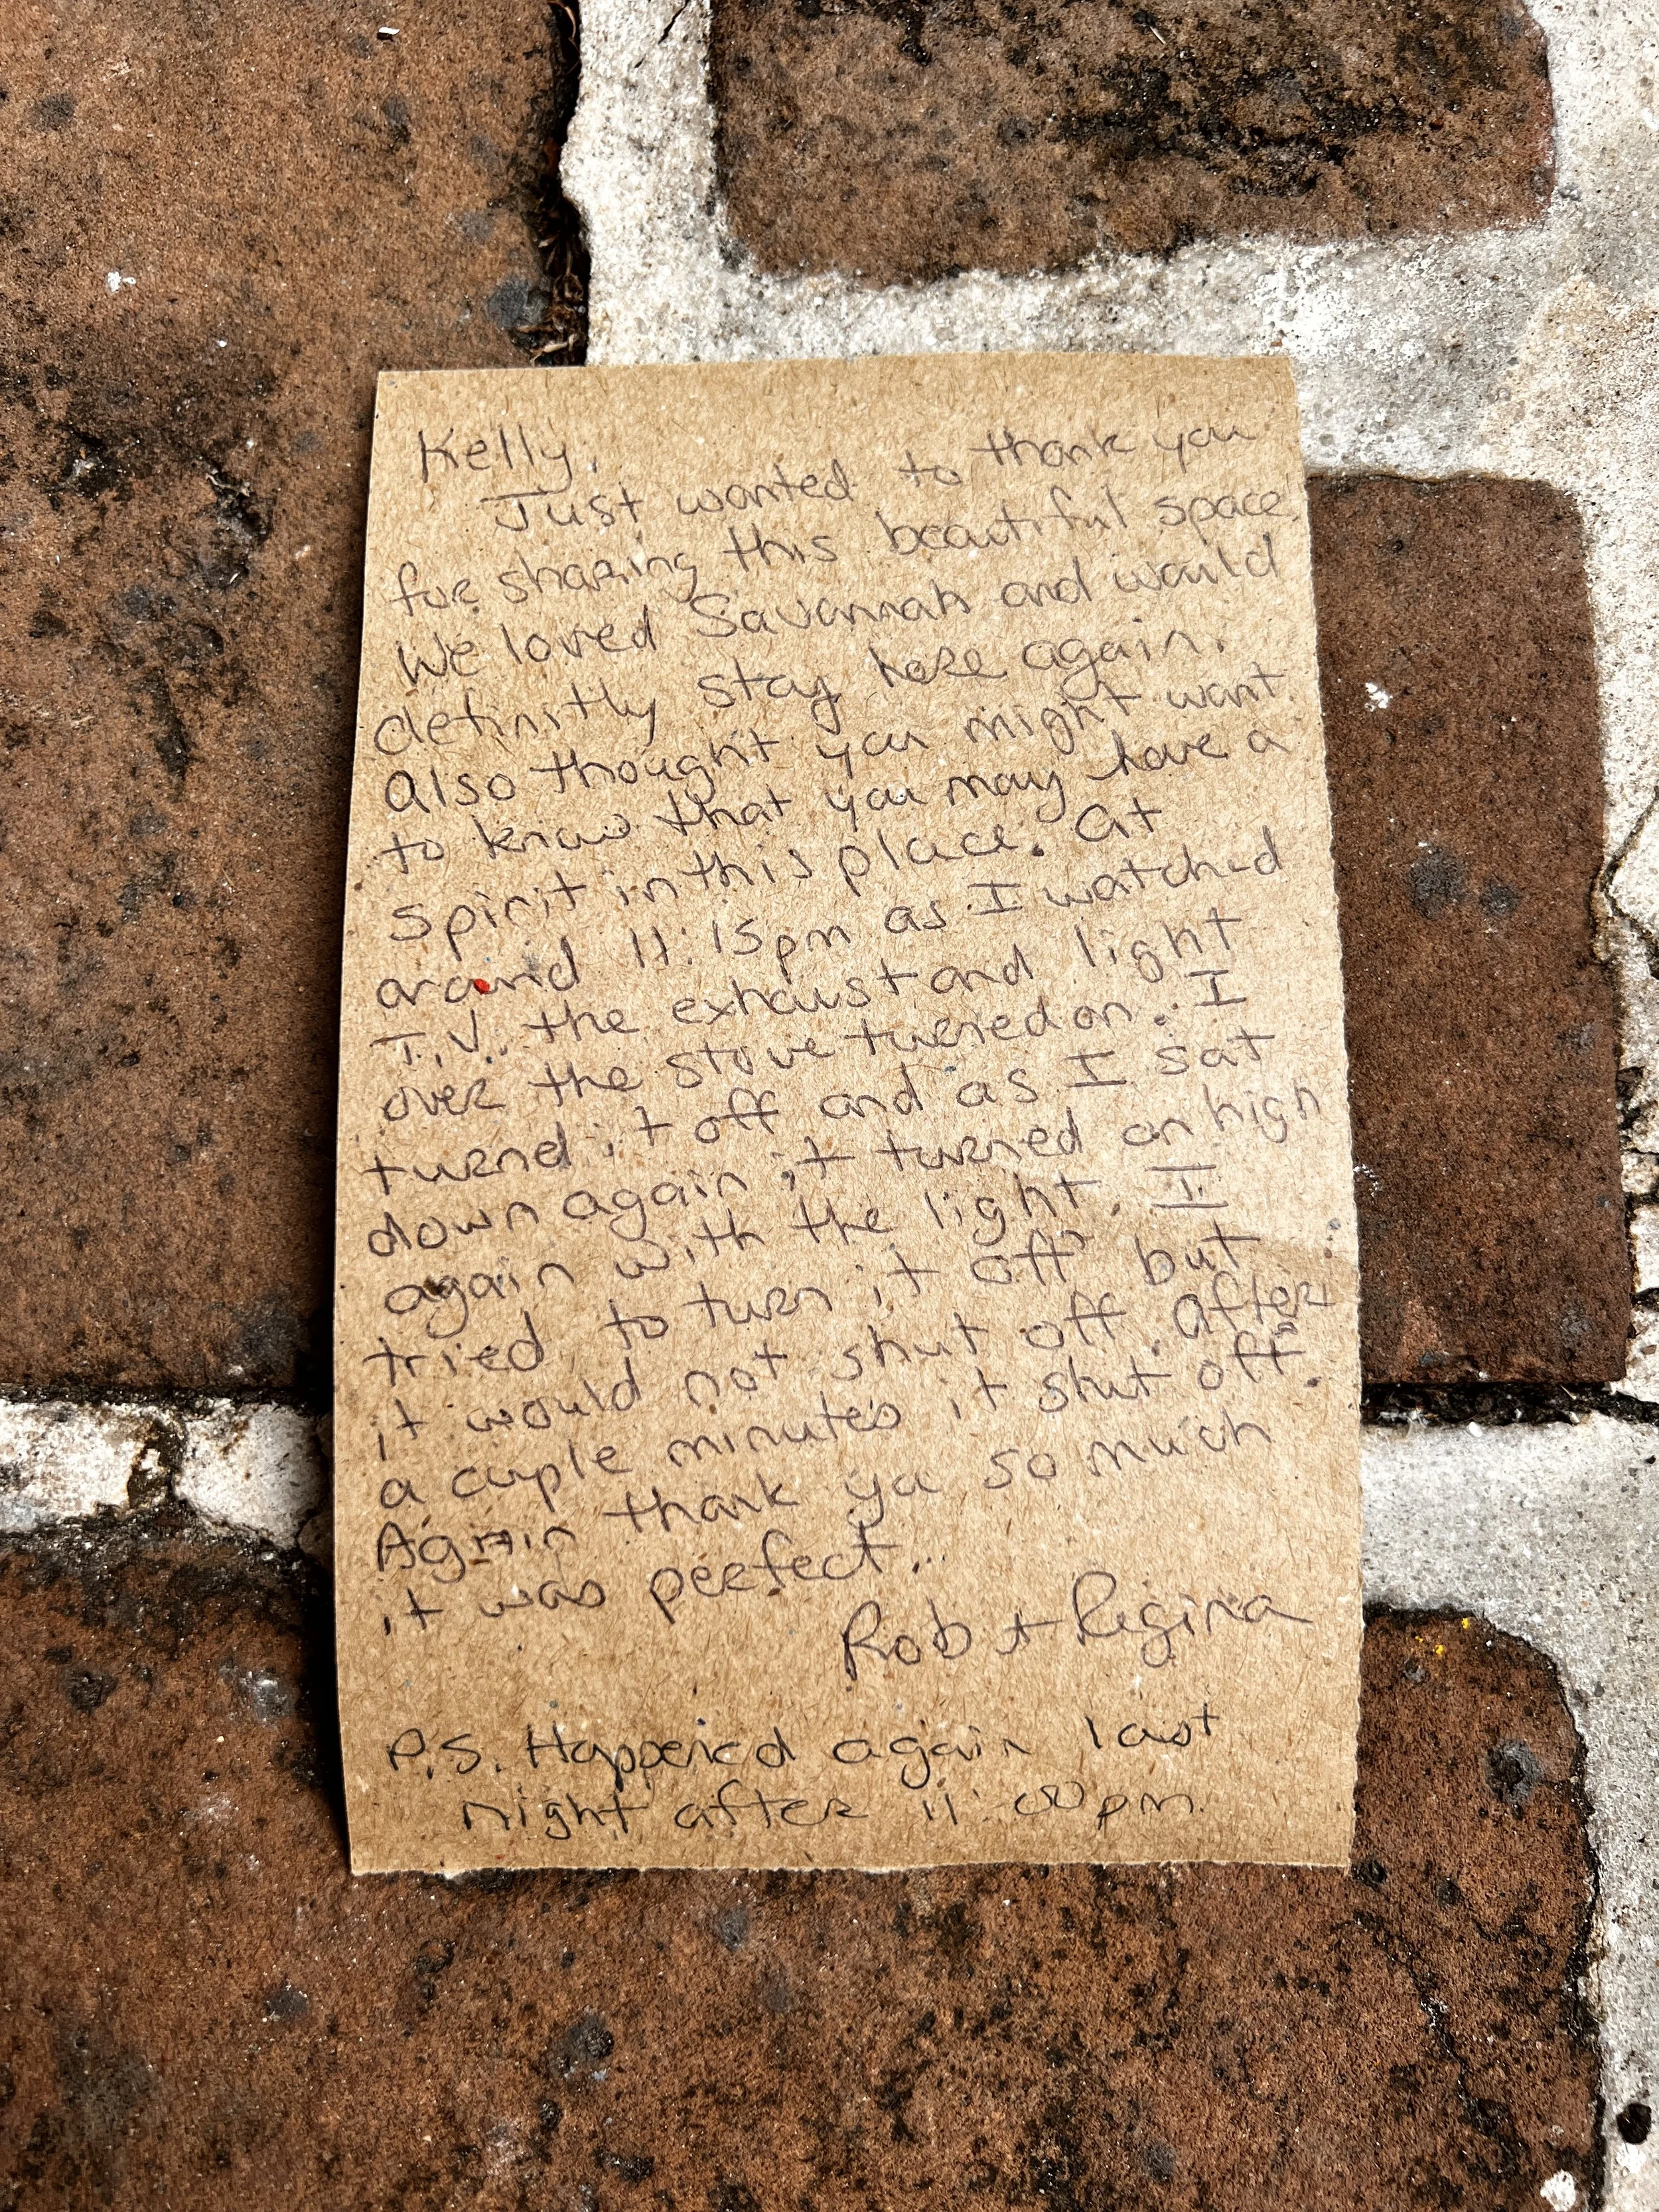 Kelly,
Just wanted to thank you
for sharing this beautiful space.
We loved Savannah and would
definitly stay here again.
Also thought you might want
to know that you may have a
spirit in this place. At
around 11:15pm as I watched
T.V. the exhaust and light
over the stove turned on. I
turned it off and as I sat
down again it turned on high
again with the light. I
tried to turn it off but
it would not shut off. After
a couple minutes it shut off.
Again thank you so much
it was perfect.
Rob + Regina
P.S. Happened again last
night after 11:00pm.